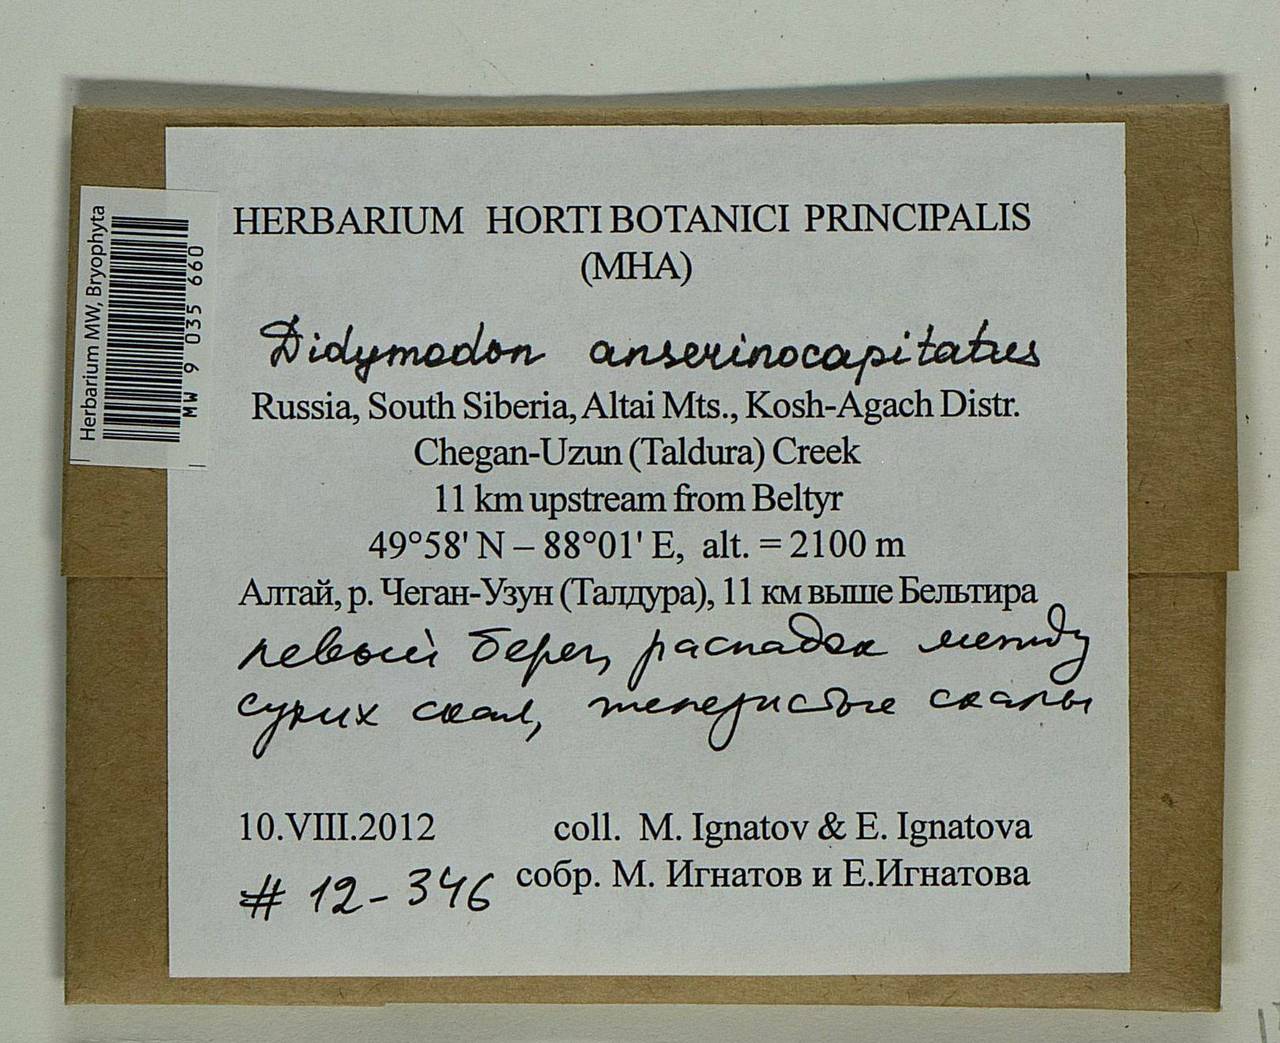 Herbarium MW, Bryophyta
MW 9 035 660
HERBARIUM HORTI BOTANICI PRINCIPALIS
(MHA)
Didymodon anserinocapitatus
Russia, South Siberia, Altai Mts., Kosh-Agach Distr.
Chegan-Uzun (Taldura) Creek
11 km upstream from Beltyr
49°58' N – 88°01' E, alt. = 2100 m
Алтай, р. Чеган-Узун (Талдура), 11 км выше Бельтира
левый берег, распадок между
сухих скал, щелистые скалы
10.VIII.2012 coll. M. Ignatov & E. Ignatova
# 12-346 собр. М. Игнатов и Е.Игнатова